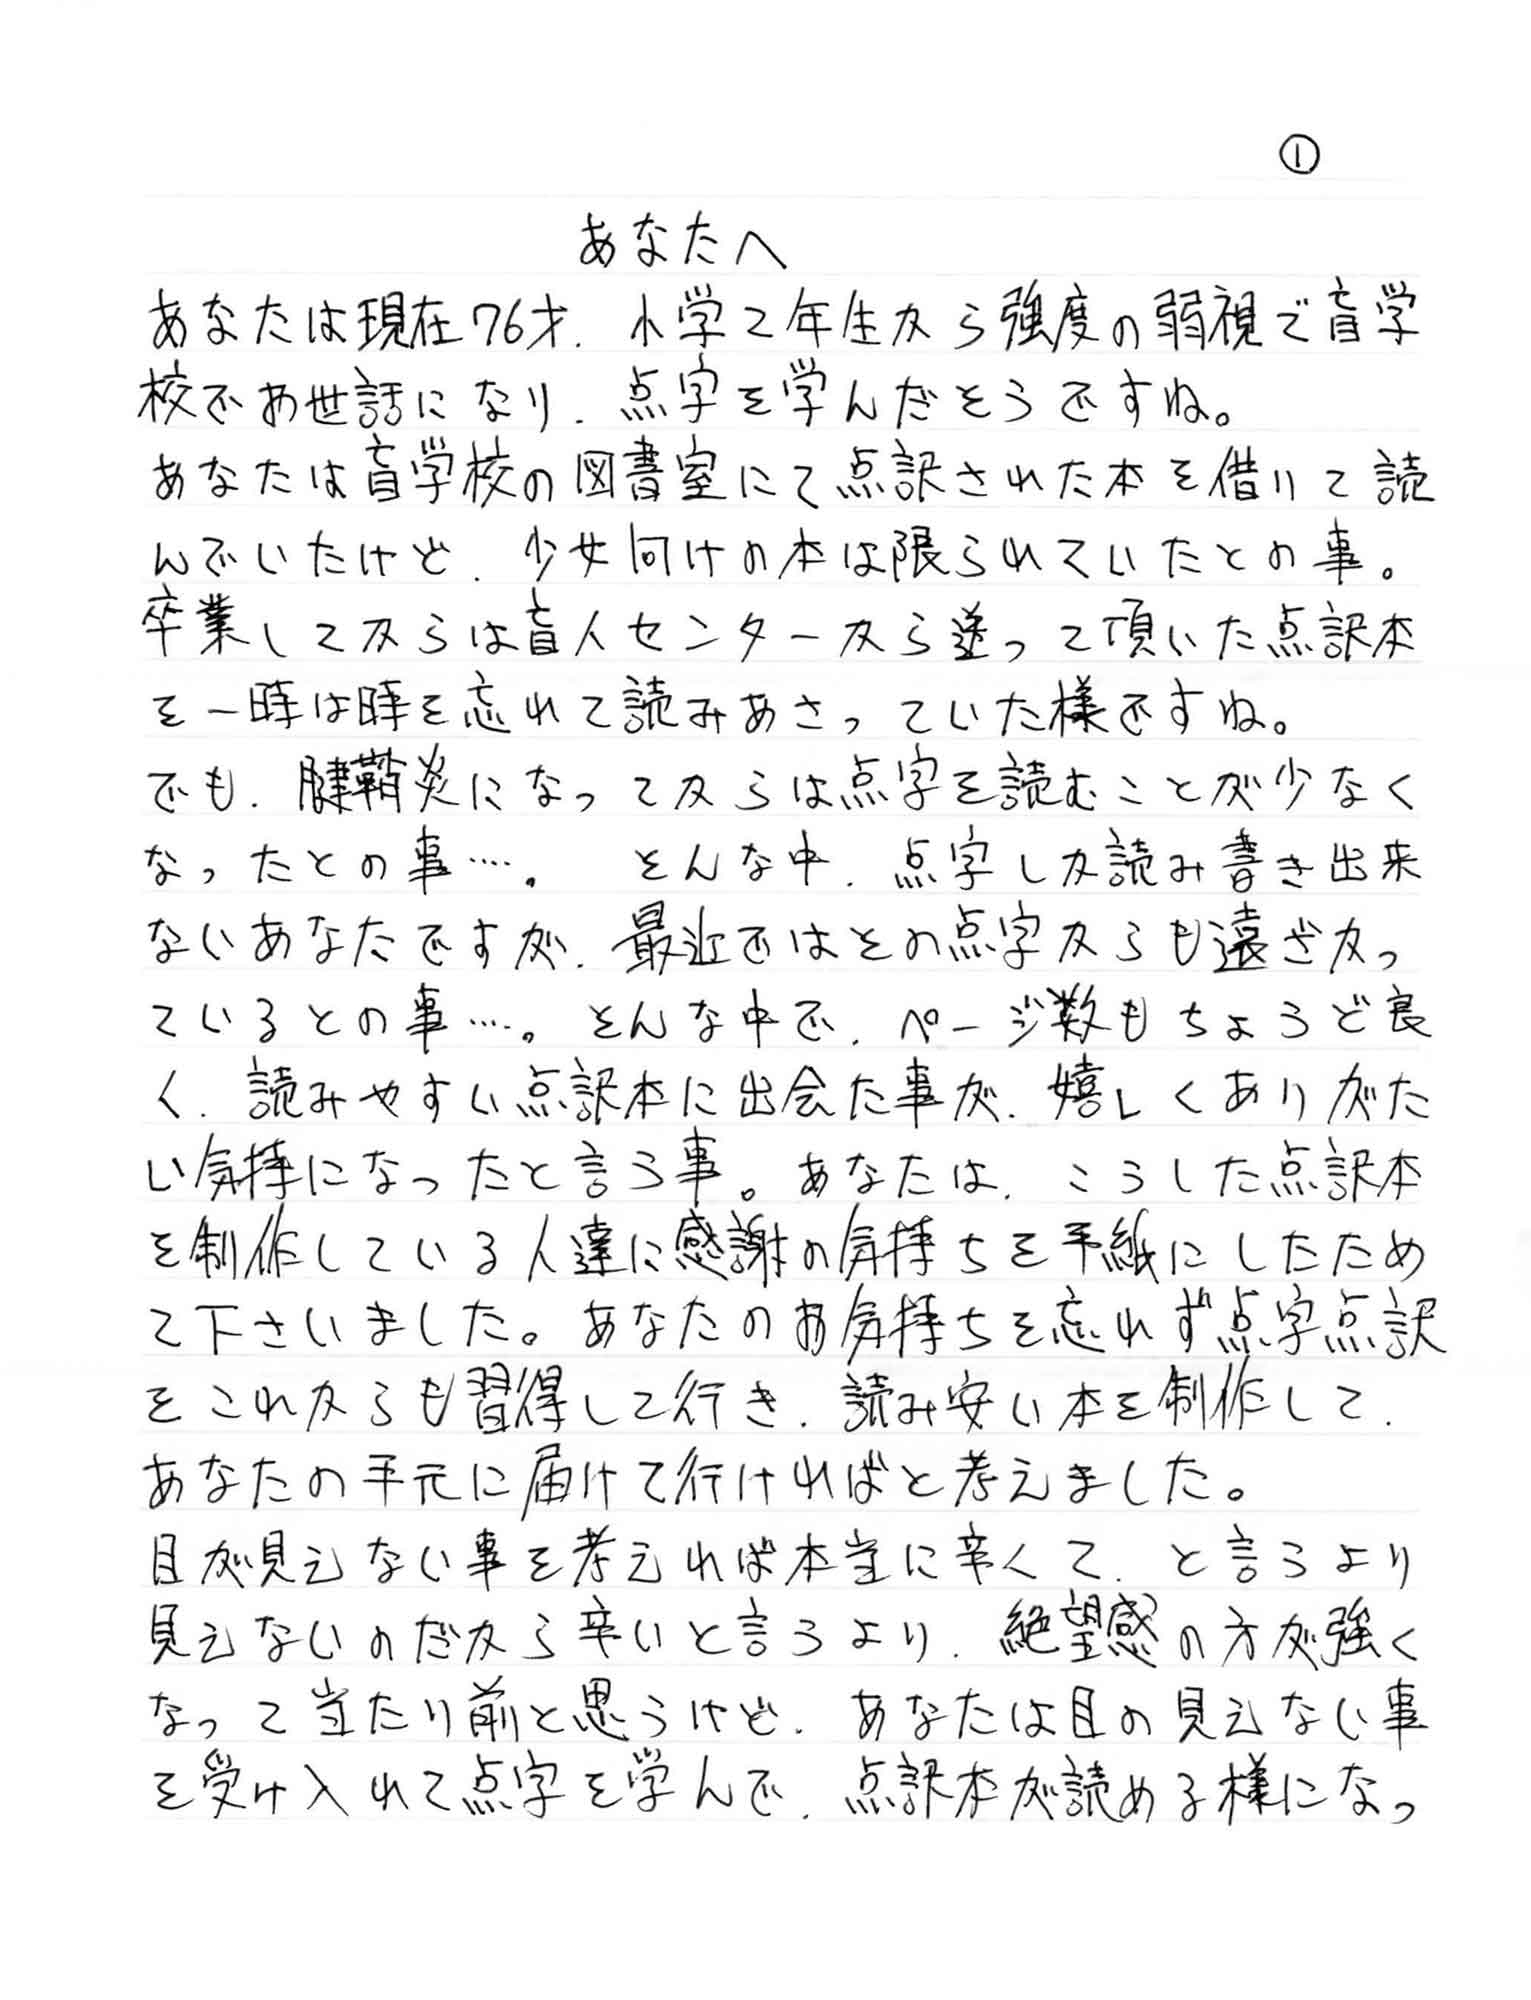 ①
あなたへ
あなたは現在76才、小学2年生から強度の弱視で盲学
校でお世話になり、点字を学んだそうですね。
あなたは盲学校の図書室にて点訳された本を借りて読
んでいたけど、少女向けの本は限られていたとの事。
卒業してからは盲人センターから送って頂いた点訳本
を一時は時を忘れて読みあさっていた様ですね。
でも、腱鞘炎になってからは点字を読むことが少なく
なったとの事….。 そんな中、点字しか読み書き出来
ないあなたですが、最近ではその点字からも遠ざかっ
ているとの事….。そんな中で、ページ数もちょうど良
く、読みやすい点訳本に出会た事が、嬉しくありがた
い気持になったと言う事。あなたは、こうした点訳本
を制作している人達に感謝の気持ちを手紙にしたため
て下さいました。あなたのお気持ちを忘れず点字点訳
をこれからも習得して行き、読み安い本を制作して、
あなたの手元に届けて行ければと考えました。
目が見えない事を考えれば本当に辛くて、と言うより
見えないのだから辛いと言うより、絶望感の方が強く
なって当たり前と思うけど、あなたは目の見えない事
を受け入れて点字を学んで、点訳本が読める様になっ